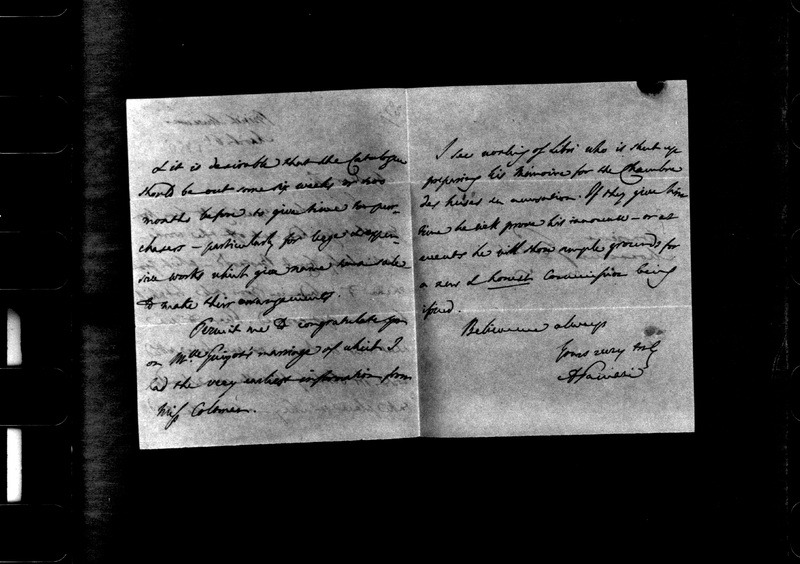 & it is desirable that the Catalogue
should be out some six weeks or two
months before to give time to pur-
chasers – particularly for large & expen-
sive works which give name to a sale
to make their arrangements.
Permit me to congratulate you
on Mlle Guizot's marriage of which I
had the very earliest information from
Miss Colomier.
I see nothing of Libri who is shut up
preparing his Mémoire for the Chambre
des mises en accusation. If they give him
time he will prove his innocence – or at
events he will show ample grounds for
a new & honest Commission being
issued.
Believe me always
yours very truly
APanizzi